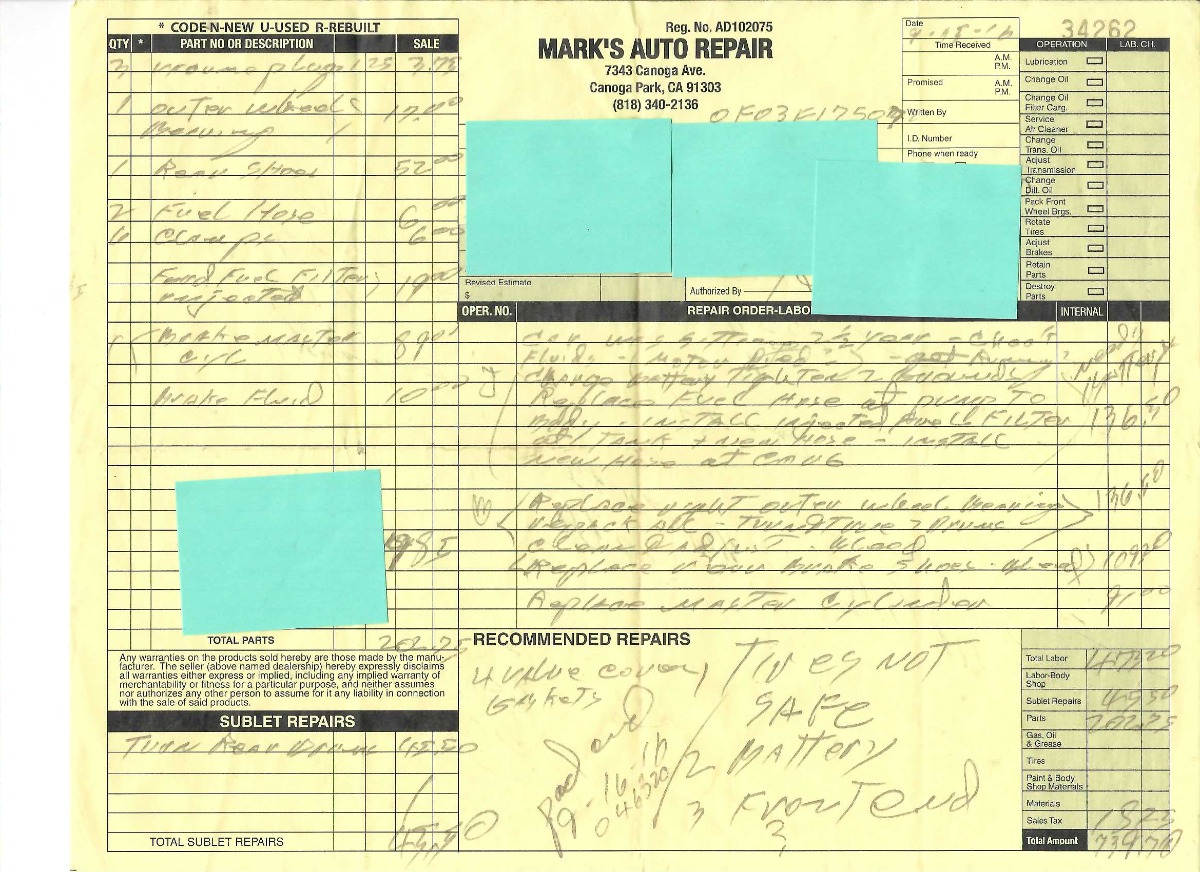 * CODE N-NEW U-USED R-REBUILT
QTY * PART NO OR DESCRIPTION SALE
1 outer wheel 17.00
Bearing
1 Rear Shoes 52.00
2 Fuel Hose 6.00
6 Clamps 6.00
Fuel Filter 19.00
injected
1 Brake Master 89
Cyl
Brake Fluid 10.00
TOTAL PARTS 202.25
Any warranties on the products sold hereby are those made by the manu-
facturer. The seller (above named dealership) hereby expressly disclaims
all warranties either express or implied, including any implied warranty of
merchantability or fitness for a particular purpose, and neither assumes
nor authorizes any other person to assume for it any liability in connection
with the sale of said products.
SUBLET REPAIRS
Turn Rear Drums 45.50
TOTAL SUBLET REPAIRS 45.50
Reg. No. AD102075
MARK'S AUTO REPAIR
7343 Canoga Ave.
Canoga Park, CA 91303
(818) 340-2136
Revised Estimate
$
Authorized By
Date
34262
Time Received
A.M.
P.M.
Promised
A.M.
P.M.
Written By
I.D. Number
Phone when ready
OPERATION LAB. CH.
Lubrication
Change Oil
Change Oil
Filter Carg.
Service
Air Cleaner
Change
Trans. Oil
Adjust
Transmission
Change
Diff. Oil
Pack Front
Wheel Brgs.
Rotate
Tires
Adjust
Brakes
Retain
Parts
Destroy
Parts
OPER. NO. REPAIR ORDER-LABO INTERNAL
Car was sitting 2 1/2 year - Check
Fluids - Motor
Change Battery Tighten
Replace Fuel Hose at pump to
Body - INSTALL injected Fuel FILTER 136.50
at TANK + new Hose - INSTALL
new Hose at
Replace right outer wheel Bearing 136.50
repack All - Turn True 2 Drums
Clean & Adjust - Bleed
Replace rear Brake Shoes - Bleed
Replace Master Cylinder 91.00
RECOMMENDED REPAIRS
4 valve cover
Gaskets
1 Tires NOT
SAFE
2 Battery
3 Front end
Total Labor
Labor-Body
Shop
Sublet Repairs 45.50
Parts 202.25
Gas, Oil
& Grease
Tires
Paint & Body
Shop Materials
Materials
Sales Tax
Total Amount 739.70